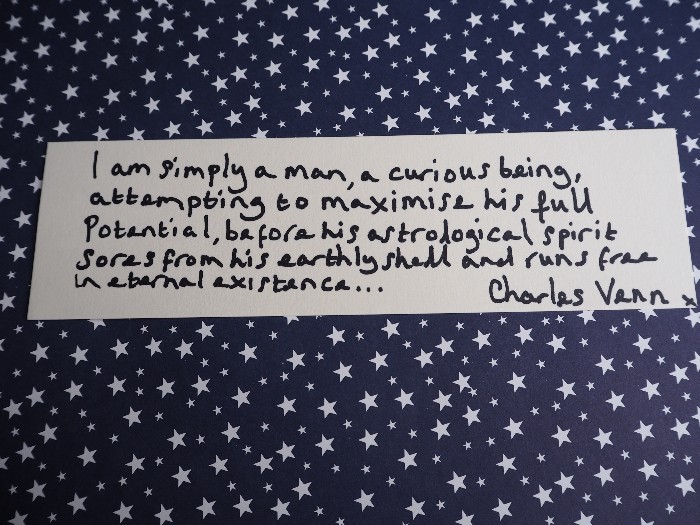 I am simply a man, a curious being,
attempting to maximise his full
Potential, before his astrological spirit
sores from his earthly shell and runs free
in eternal existence...
Charles Venn x